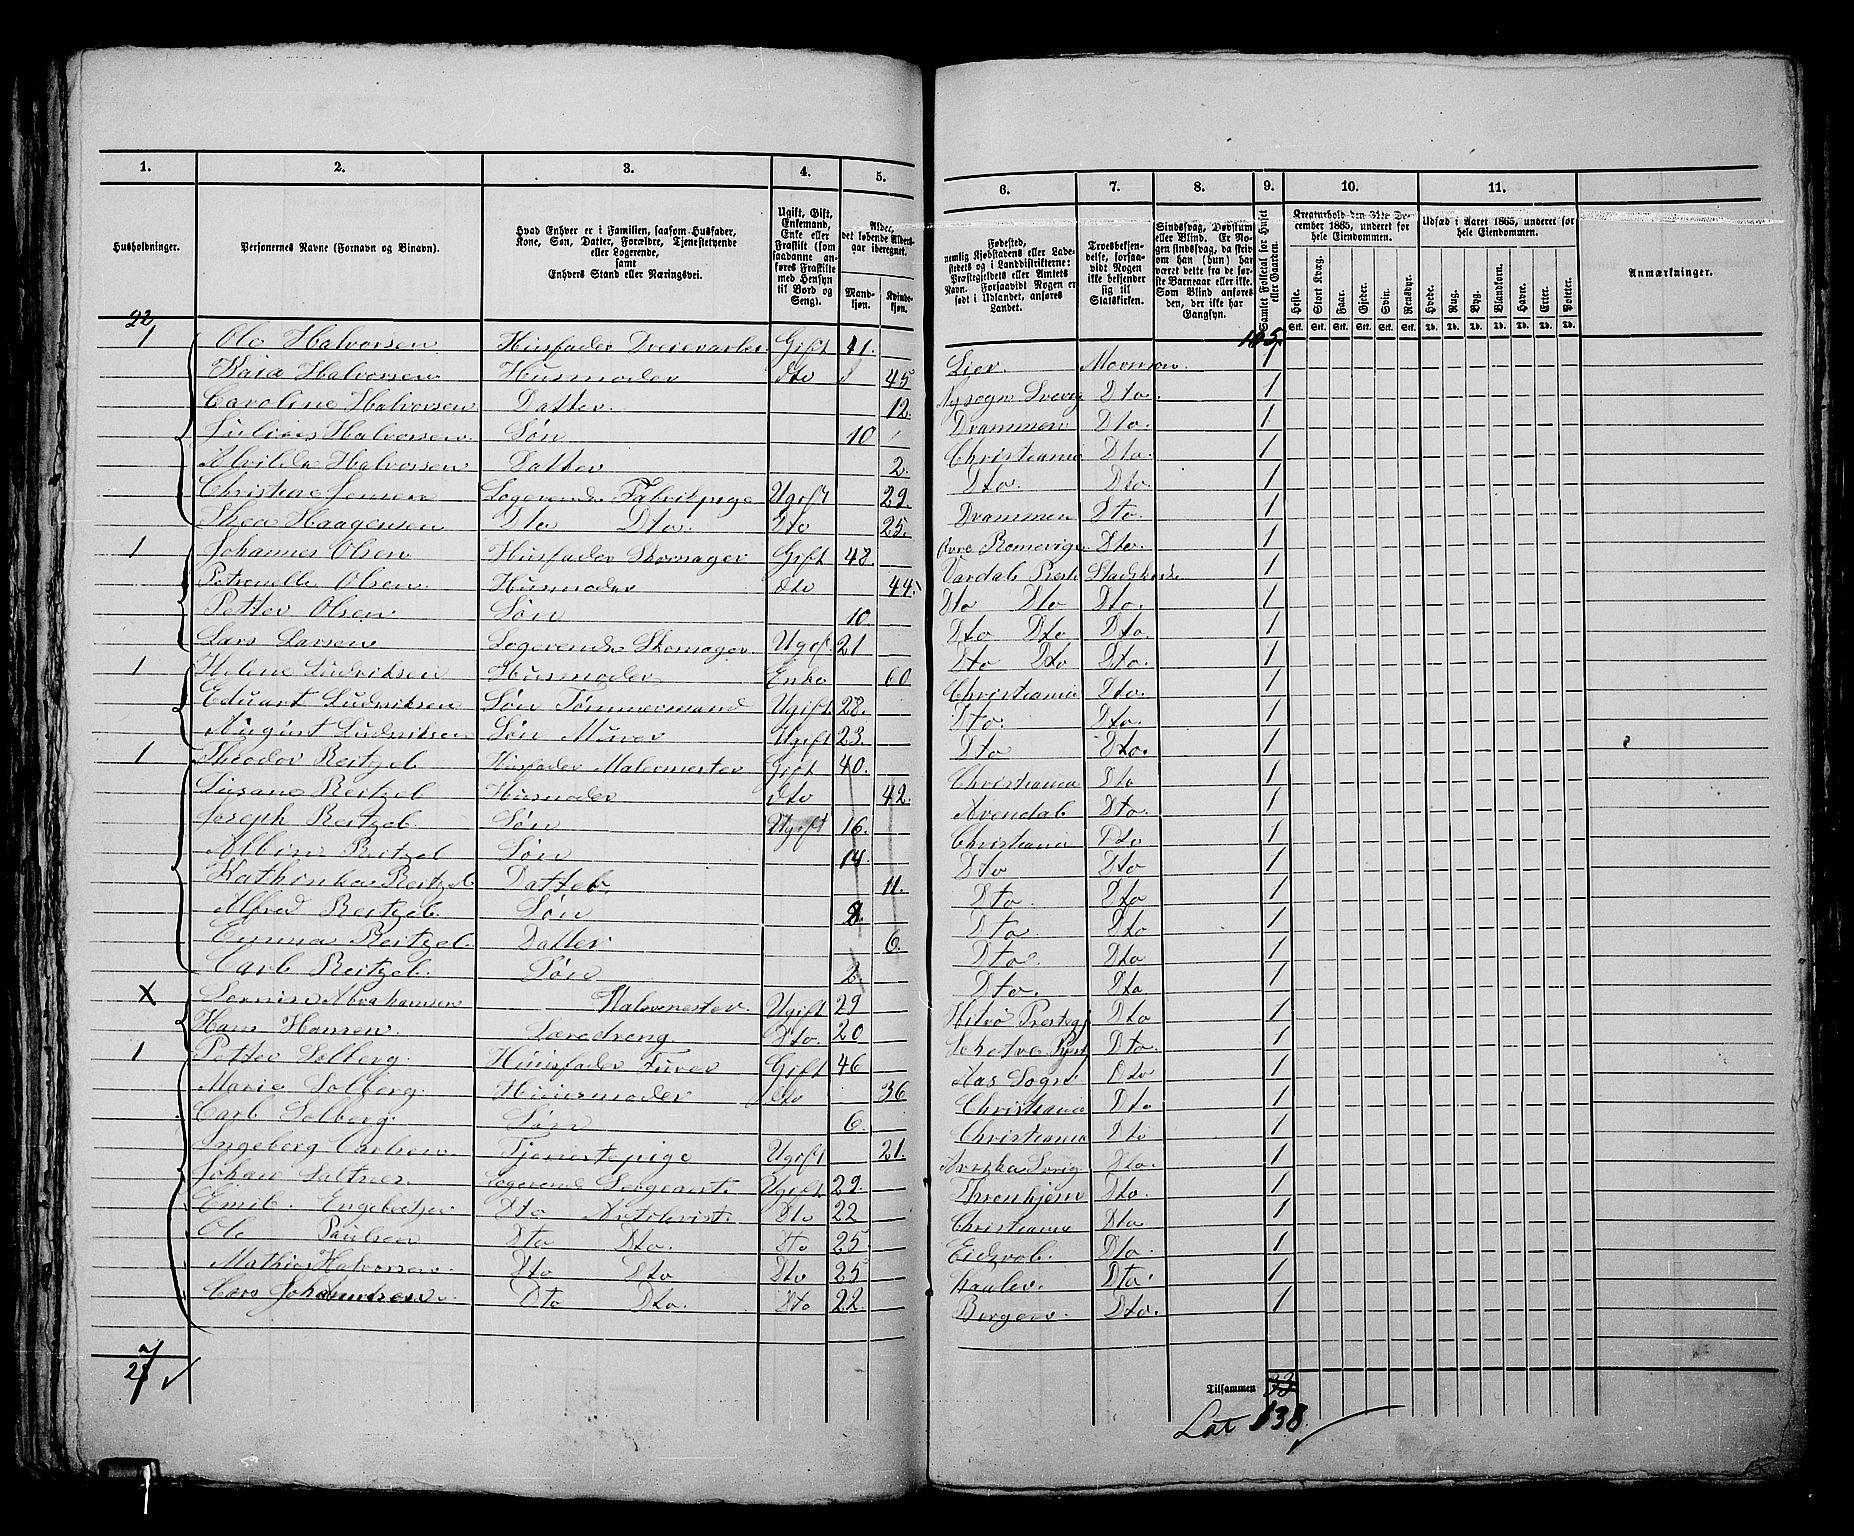 1. 2. 3. 4. 5. 6. 7. 8. 9. 10. 11.
Husholdninger.
Personernes Navne (Fornavn og Binavn).
Hvad Enhver er i Familien, saasom Husfader, Kone, Søn, Datter, Forældre, Tjenestetyende eller Logerende, samt Enhvers Stand eller Næringsvei.
Ugift, Gift, Enkemand, Enke eller Fraskilt (som saadanne anføres Fraskilte med Hensyn til Bord og Seng).
Alder, det løbende Aldersaar iberegnet.
Mandkjøn. Kvindekjøn.
Fødested, nemlig Kjøbstadens eller Ladestedets og i Landdistrikterne: Præstegjeldets eller Amtets Navn. Forsaavidt Nogen er født i Udlandet, anføres Landet.
Troesbekjendelse, forsaavidt Nogen ikke bekjender sig til Statskirken.
Sindssvag, Døvstum eller Blind. Er Nogen sindssvag, da skrives om han (hun) har været dette fra de første Barneaar eller ikke. Som Blind anføres den, der ikke har Gangsyn.
Samlet Folketal for Huset eller Gaarden.
Kreaturhold den 31te December 1865, underet for hele Eiendommen.
Heste. Stort Kvæg. Faar. Gjeder. Svin. Rensdyr.
Stk. Stk. Stk. Stk. Stk. Stk.
Udsæd i Aaret 1865, underet for hele Eiendommen.
Hvede. Rug. Byg. Blandkorn. Havre. Erter. Poteter.
Td. Td. Td. Td. Td. Td. Td.
Anmærkninger.
22 105
1 Ole Halvorsen Husfader Gift 41. Lier. Mormon 1
Kaia Halvorsen Husmoder Dto 45 Dto. 1
Caroline Halvorsen Datter. 12. Drammen Dto. 1
Julius Halvorsen Søn 10 Christiania Dto. 1
Alvilde Halvorsen Datter 2. Dto. Dto. 1
Christine Jensen Logerende Fabrikpige Ugift 29. Drammen Dto. 1
Thea Haagensen Dto Dto. Dto 25. Dto. 1
1 Johannes Olsen Husfader Skomager Gift 48. Vardal Præst Statskirke 1
Petronelle Olsen Husmoder Dto 44. Dto Dto Dto. 1
Petter Olsen Søn 10. Dto Dto Dto. 1
Lars Larsen Logerende Skomager. Ugift 21 Dto Dto Dto. 1
1 Helene Ludviksen Husmoder Enke 60 Christiania Dto. 1
Eduart Ludviksen Søn Tømmermand Ugift 28. Dto. Dto. 1
August Ludviksen Søn Murer Ugift 23. Dto Dto. 1
1 Theodor Reitzel Husfader Malermester Gift 40. Christiania Dto 1
Susane Reitzel Husmoder Dto 42. Arendal Dto. 1
Joseph Reitzel. Søn Ugift 16. Christiania Dto 1
Albin Reitzel Søn 14. Dto Dto 1
Kathinka Reitzel Datter 11. Dto. Dto 1
Alfred Reitzel. Søn 8. Dto Dto 1
Emma Reitzel. Datter. 6. Dto Dto 1
Carl Reitzel. Søn 2 Dto. Dto 1
X Abrahamsen Malermester. Ugift 29 Dto 1
Hans Hansen. Læredreng. Dto. 20 Dto. 1
1 Petter Solberg. Huusfader Gift 46 Aas Sogn Dto 1
Marie Solberg. Huusmoder Dto 36 Christiania Dto 1
Carl Solberg. Søn 6. Christiania Dto 1
Ingeborg Carlsen. Tjenestepige Ugift 21. Dto. 1
Johan Logerende Sergeant. Ugift 29. Thronhjem Dto. 1
Emil. Engebretsen Dto Artilerist. Dto 22 Christiania Dto 1
Ole Paulsen Dto Dto. Dto 25 Eidsvol. Dto. 1
Mathias Halvorsen. Dto Dto Dto 25 Dto. 1
Johannesen. Dto Dto. Dto 22 Bergen. Dto. 1
27
Tilsammen 33
Lat 138